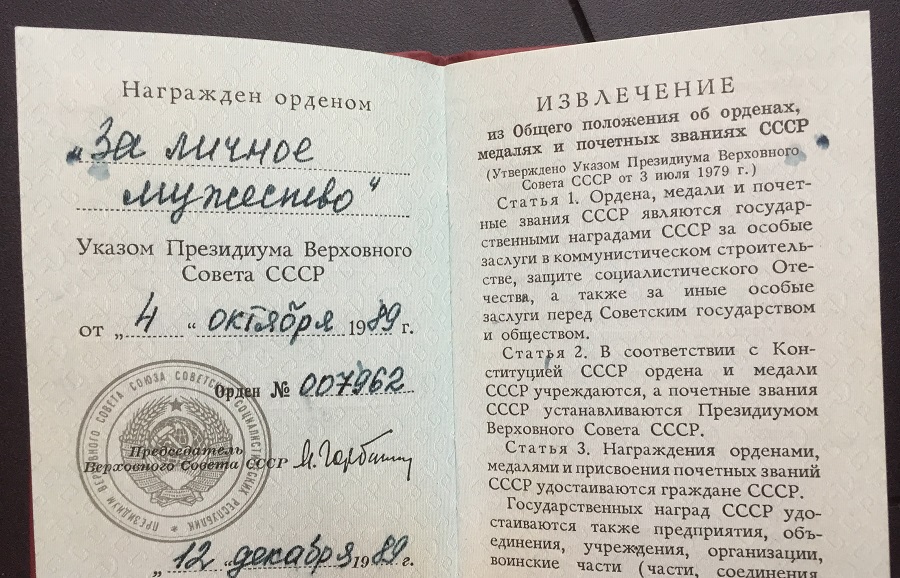 Награжден орденом
„За личное
мужество“
Указом Президиума Верховного
Совета СССР
от „4“ октября 1989 г.
Орден № 007962
Председатель
Верховного Совета СССР М. Горбачев
„12“ декабря 1989 г.
ПРЕЗИДИУМ ВЕРХОВНОГО СОВЕТА СОЮЗА СОВЕТСКИХ СОЦИАЛИСТИЧЕСКИХ РЕСПУБЛИК
ИЗВЛЕЧЕНИЕ
из Общего положения об орденах,
медалях и почетных званиях СССР
(Утверждено Указом Президиума Верховного
Совета СССР от 3 июля 1979 г.)
Статья 1. Ордена, медали и почет-
ные звания СССР являются государ-
ственными наградами СССР за особые
заслуги в коммунистическом строитель-
стве, защите социалистического Оте-
чества, а также за иные особые
заслуги перед Советским государством
и обществом.
Статья 2. В соответствии с Кон-
ституцией СССР ордена и медали
СССР учреждаются, а почетные звания
СССР устанавливаются Президиумом
Верховного Совета СССР.
Статья 3. Награждения орденами,
медалями и присвоения почетных званий
СССР удостаиваются граждане СССР.
Государственных наград СССР удо-
стаиваются также предприятия, объ-
единения, учреждения, организации,
воинские части (части, соединения